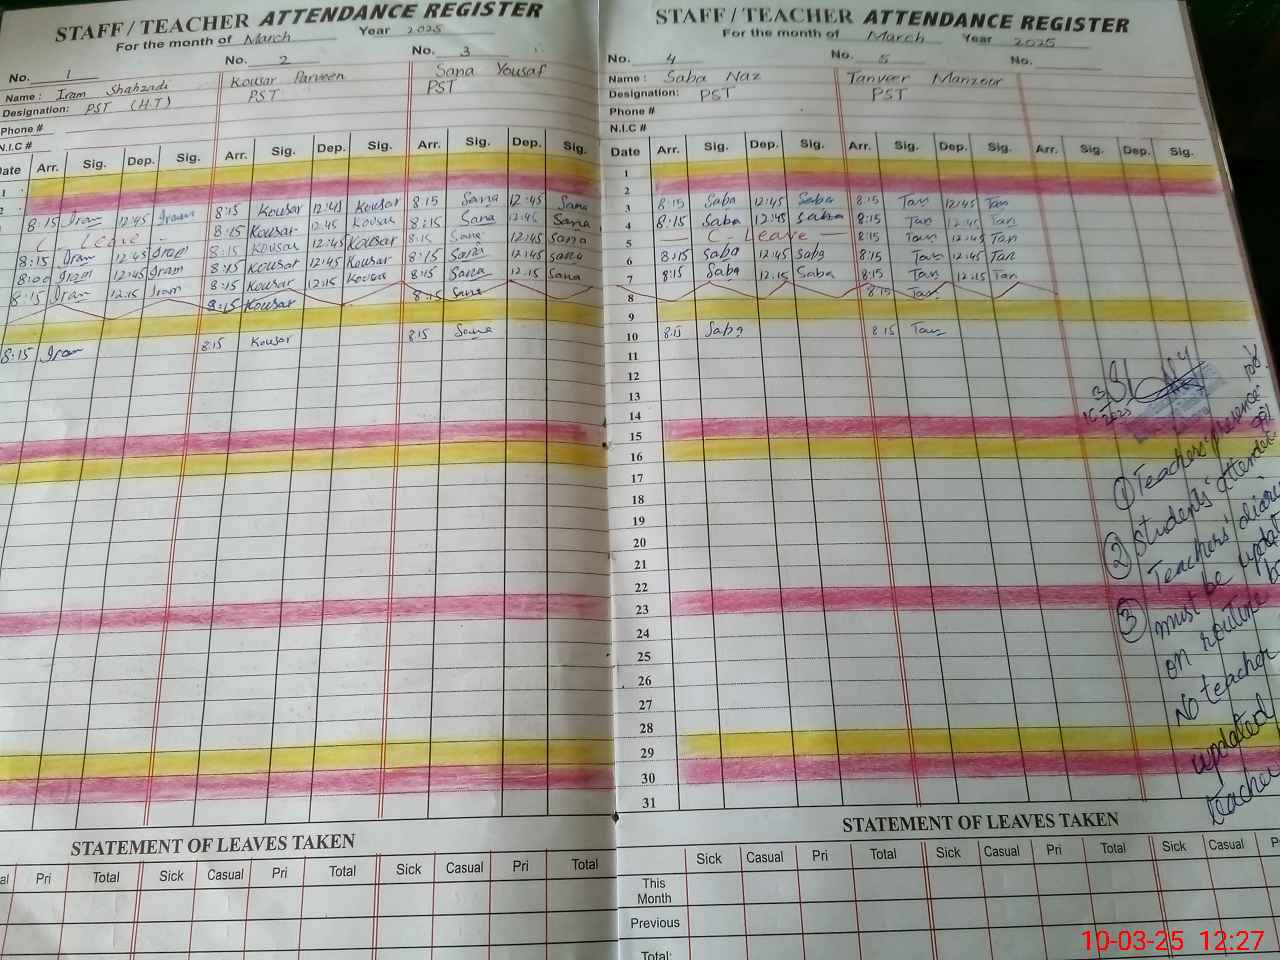 STAFF / TEACHER ATTENDANCE REGISTER
For the month of March Year 2025
No. 1 No. 2 No. 3
Name : Iram Shahzadi Kousar Parveen Sana Yousaf
Designation: PST (H.T) PST PST
Phone #
N.I.C #
Date Arr. Sig. Dep. Sig. Arr. Sig. Dep. Sig. Arr. Sig. Dep. Sig.
1
2
8:15 Iram 12:45 Iram 8:15 Kousar 12:45 Kousar 8:15 Sana 12:45 Sana
( Leave - 8:15 Kousar 12:45 Kousar 8:15 Sana 12:45 Sana
8:15 Iram 12:45 Iram 8:15 Kousar 12:45 Kousar 8:15 Sana 12:45 Sana
8:00 Iram 12:45 Iram 8:15 Kousar 12:45 Kousar 8:15 Sana 12:45 Sana
8:15 Iram 12:15 Iram 8:15 Kousar 12:15 Kousar 8:15 Sana 12:15 Sana
8:15 Kousar 8:15 Sana
8:15 Iram 8:15 Kousar 8:15 Sana
STATEMENT OF LEAVES TAKEN
Pri Total Sick Casual Pri Total Sick Casual Pri Total
STAFF / TEACHER ATTENDANCE REGISTER
For the month of March Year 2025
No. 4 No. 5 No.
Name : Saba Naz Tanveer Manzoor
Designation: PST PST
Phone #
N.I.C #
Date Arr. Sig. Dep. Sig. Arr. Sig. Dep. Sig. Arr. Sig. Dep. Sig.
1
2
3 8:15 Saba 12:45 Saba 8:15 Tan 12:45 Tan
4 8:15 Saba 12:45 Saba 8:15 Tan 12:45 Tan
5 ( Leave 8:15 Tan 12:45 Tan
6 8:15 Saba 12:45 Saba 8:15 Tan 12:45 Tan
7 8:15 Saba 12:15 Saba 8:15 Tan 12:15 Tan
8 8:15 Tan
9
10 8:15 Saba 8:15 Tan
11
12
13
14
15
16
17
18
19
20
21
22
23
24
25
26
27
28
29
30
31
① Teachers' presence
② Students'
Teachers'
③ must be
on routine
No teacher
updated
teacher
STATEMENT OF LEAVES TAKEN
Sick Casual Pri Total Sick Casual Pri Total Sick Casual
This Month
Previous
Total:
10-03-25 12:27